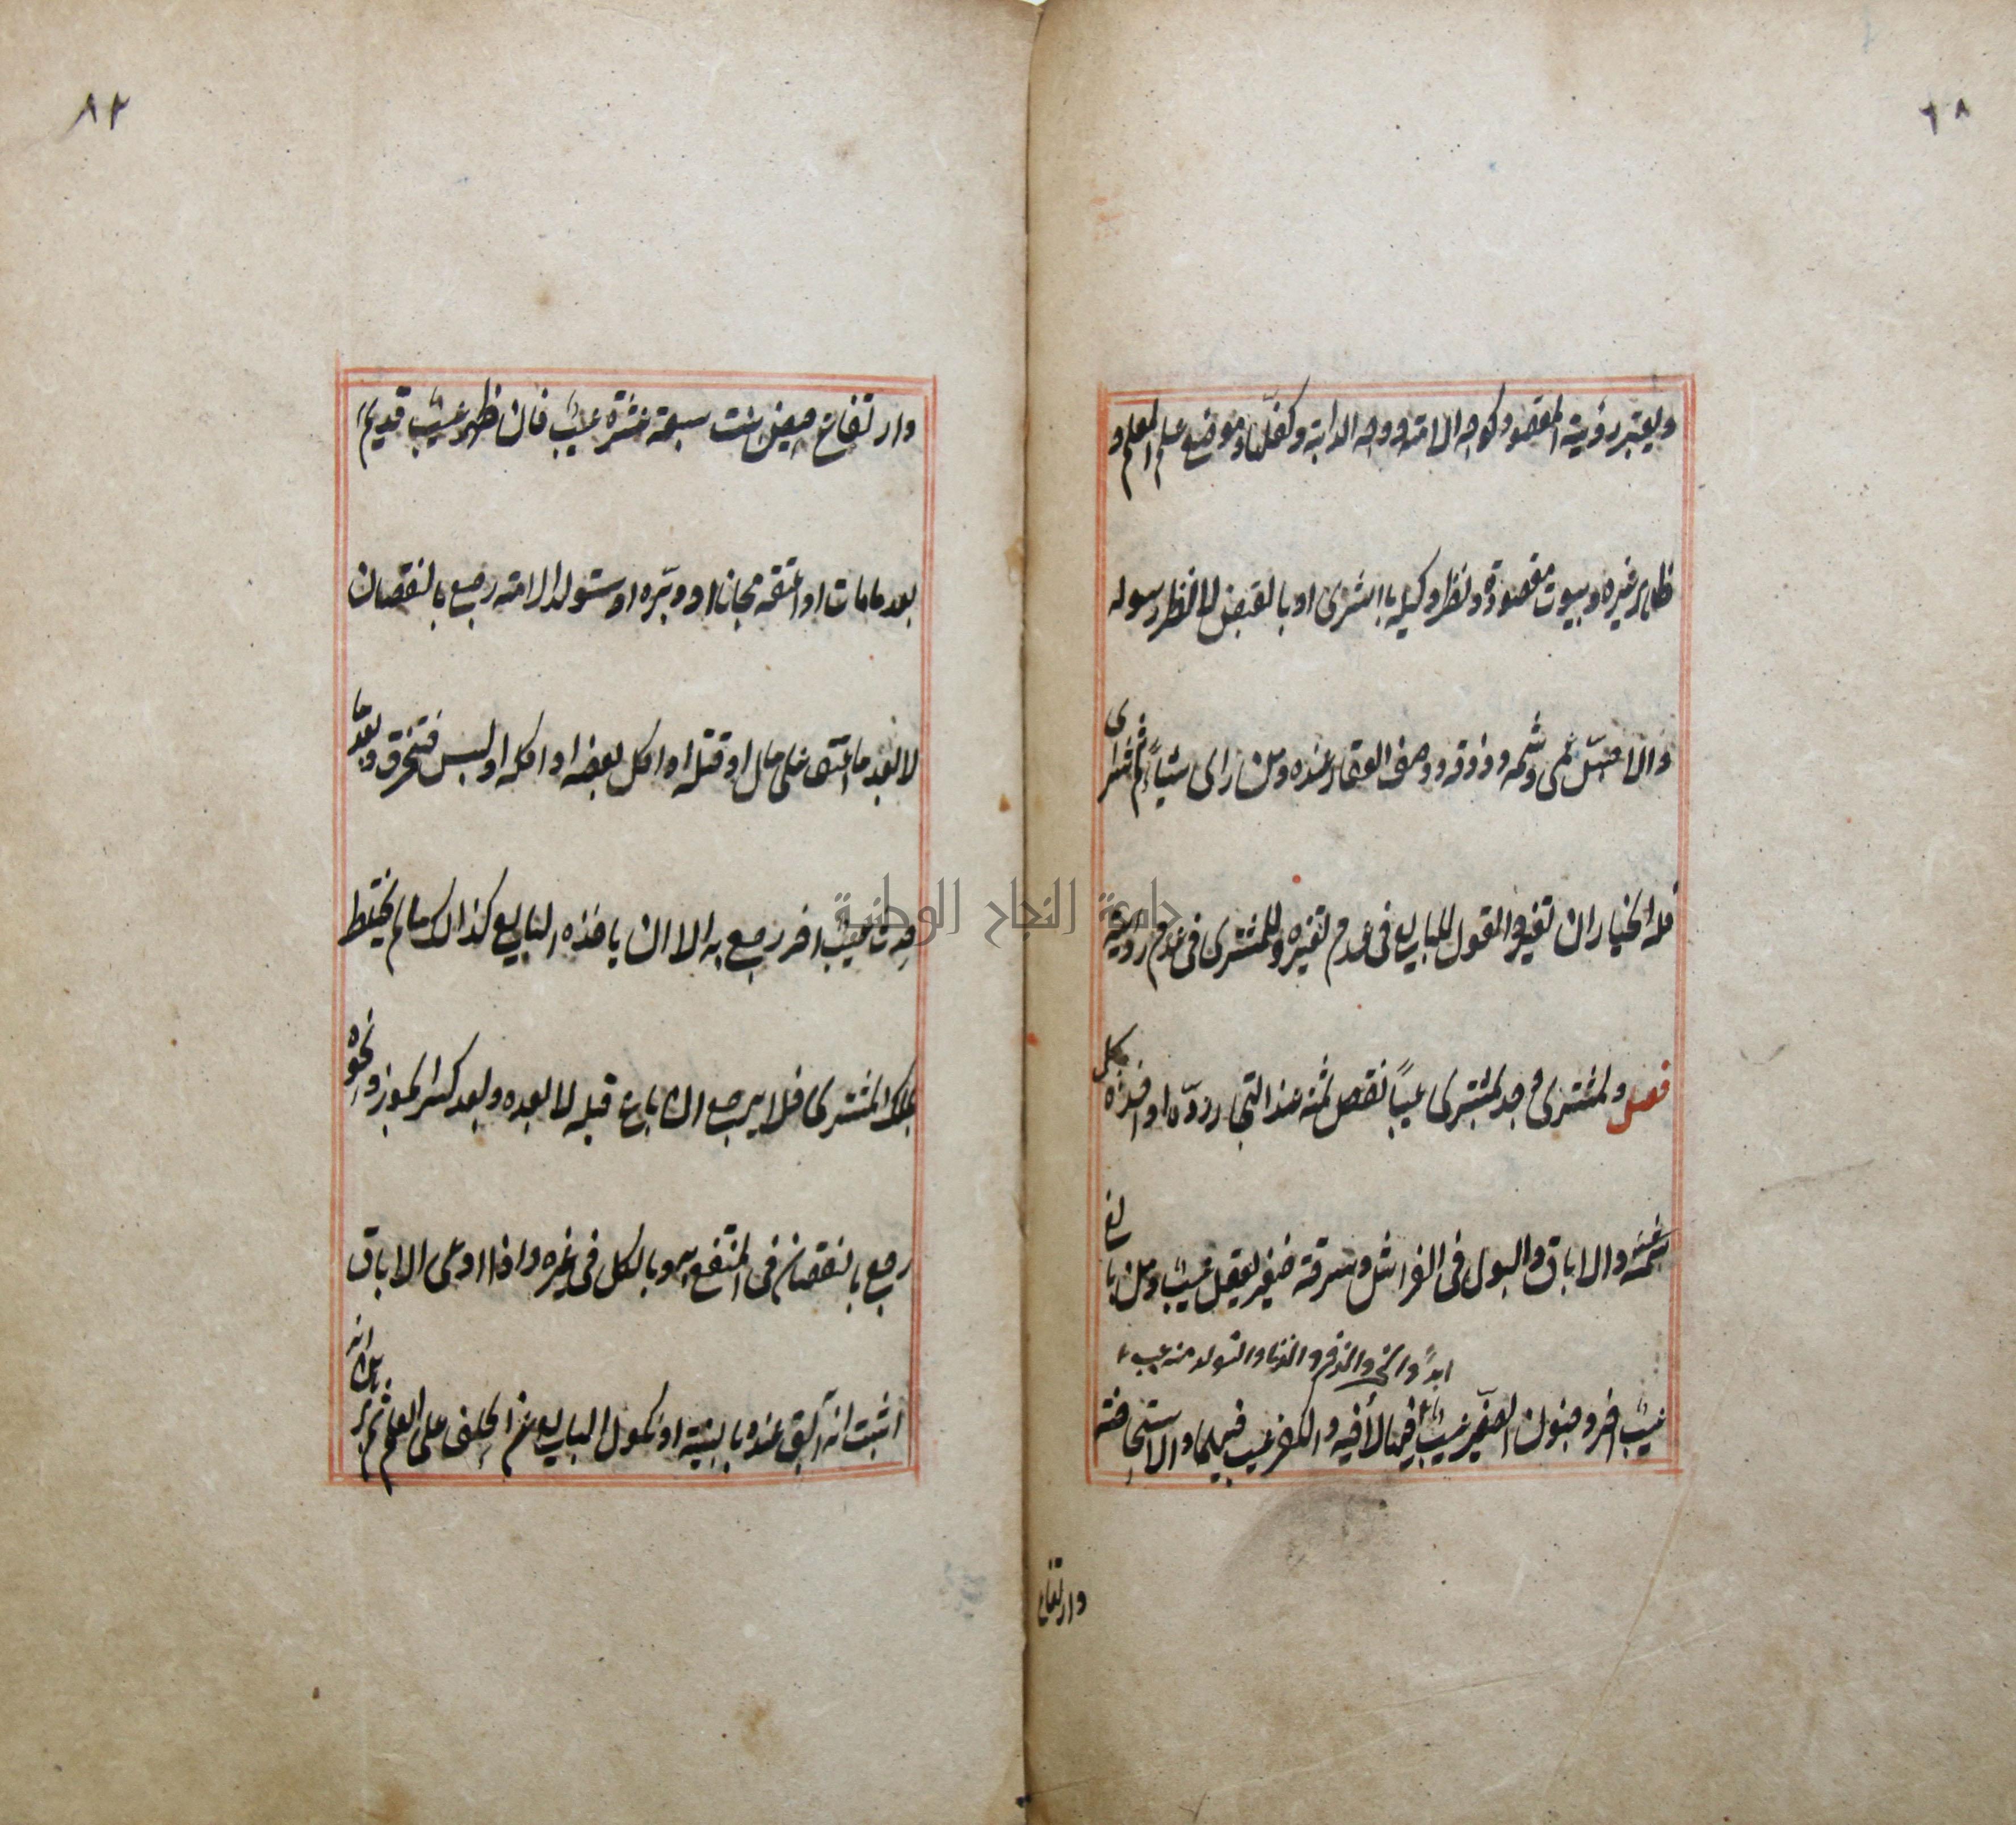 ٦٨
ويعتبر رؤية المقصود كوجه الامة ووجه الدابة وكفلها وموضع علم المعلم و
ظاهر غيره وبيوت مقصودة ونظر وكيله بالشرى او بالقبض لا نظر رسوله
والاعمى وشمه وذوقه ووصف العقار عنده ومن راى شيئاً ثم شرى
فله الخيار ان تغير والقول للبايع فى عدم تغيره وللمشترى فى عدم رؤيته
فصل ولمشترى وجد لمشترى عيباً نقص ثمنه عند التجار رده او اخذه بكل
ثمنه والاباق والبول فى الفراش وسرقة صغير يعقل عيب ومن بالغ
ابداً والبخر والذفر والزنا والتولد منه عيب
عيب اخر وجنون الصغير عيب فيها لا فيه والكفر عيب فيهما والاستحاضة
وارتفاع
٨٢
وارتفاع حيض بنت سبعة عشرة عيب فان ظهر عيب قديم
بعد ما مات او اعتقه مجانا او دبره او ستولد الامة رجع بالنقصان
لا بعد ما اعتق على مال او قتله او اكل بعضه او اكله او لبس فتخرق وبعد ما
حدث عيب اخر رجع به الا ان ياخذه البايع كذالك مالم يختلط
بملك المشترى فلا يرجع ان باع قبله لا بعده وبعد كسر الجوز ونحوه
رجع بالنقصان فى المنتفع به وبالكل فى غيره واذا ادعى الاباق
اثبت انه ابق عنده بالبينة او نكول البايع عن الحلف على العلم ثم برهن انه
جامعة النجاح الوطنية